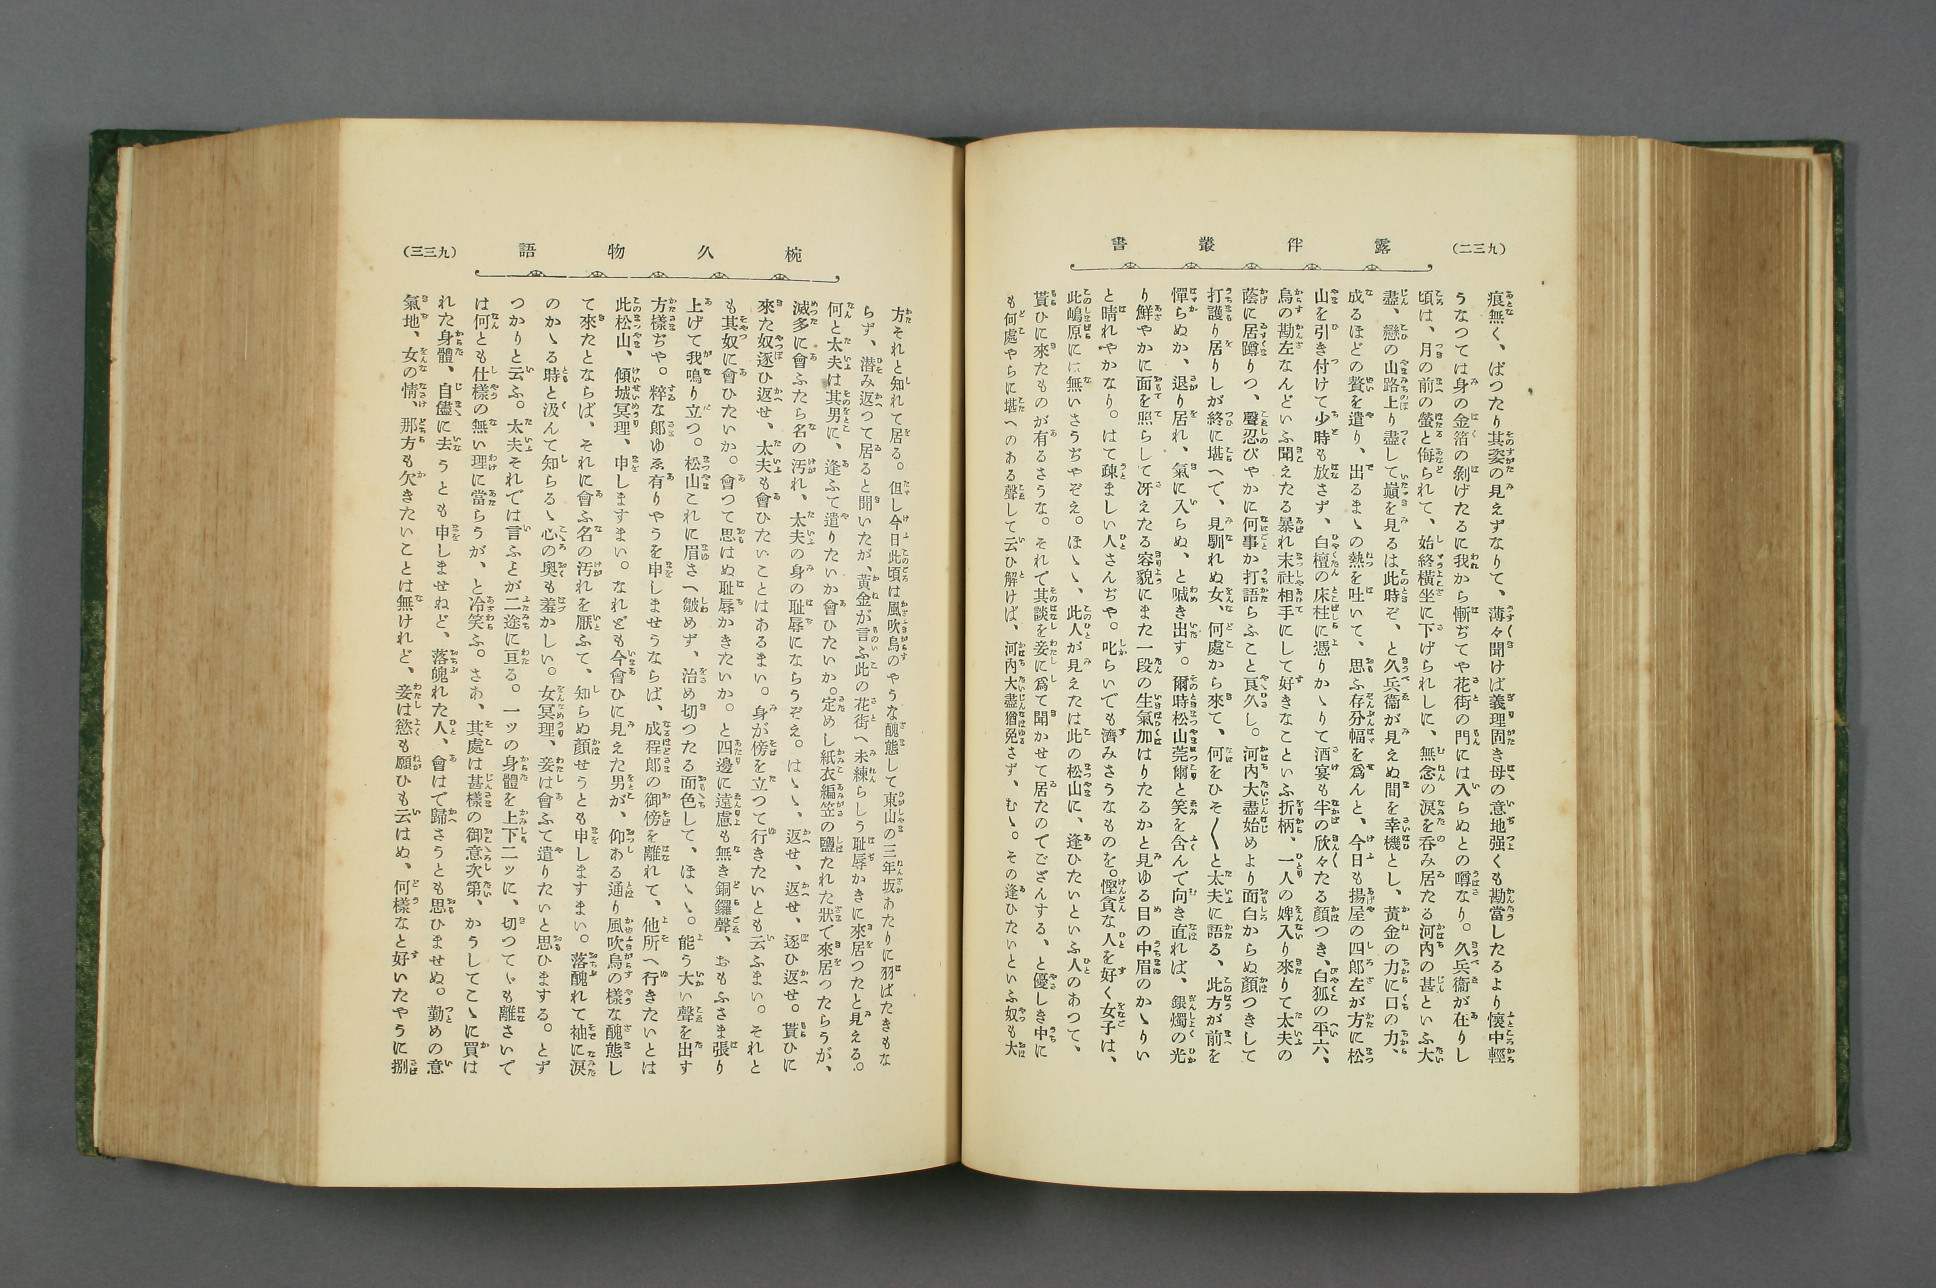 （二三九）
露伴叢書
痕無く、ばつたり其姿の見えずなりて、薄々聞けば義理固き母の意地強くも勘當したるより懷中輕
うなつては身の金箔の剝げたるに我から慚ぢてや花街の門には入らぬとの噂なり。久兵衞が在りし
頃は、月の前の螢と侮られて、始終橫坐に下げられしに、無念の淚を呑み居たる河内の甚といふ大
盡、戀の山路上り盡して巓を見るは此時ぞ、と久兵衞が見えぬ間を幸機とし、黃金の力に口の力、
成るほどの贅を遣り、出るまゝの熱を吐いて、思ふ存分幅を爲んと、今日も揚屋の四郎左が方に松
山を引き付けて少時も放さず、白檀の床柱に憑りかゝりて酒宴も半の欣々たる顏つき、白狐の平六、
烏の勘左なんどいふ聞えたる暴れ末社相手にして好きなこといふ折柄、一人の婢入り來りて太夫の
蔭に居蹲りつ、聲忍びやかに何事か打語らふこと良久し。河内大盡始めより面白からぬ顏つきして
打護り居りしが終に堪へで、見馴れぬ女、何處から來て、何をひそ〱と太夫に語る、此方が前を
憚らぬか、退り居れ、氣に入らぬ、と喊き出す。爾時松山莞爾と笑を含んで向き直れば、銀燭の光
り鮮やかに面を照らして冴えたる容貌にまた一段の生氣加はりたるかと見ゆる目の中眉のかゝりい
と晴れやかなり。はて疎ましい人さんぢや。叱らいでも濟みさうなものを。慳貪な人を好く女子は、
此嶋原にに無いさうぢやぞえ。ほゝゝ、此人が見えたは此の松山に、逢ひたいといふ人のあつて、
貰ひに來たものが有るさうな。それで其談を妾に爲て聞かせて居たのでござんする、と優しき中に
も何處やらに堪へのある聲して云ひ解けば、河内大盡猶免さず、むゝ。その逢ひたいといふ奴も大
（三三九）
椀久物語
方それと知れて居る。但し今日此頃は風吹烏のやうな醜態して東山の三年坂あたりに羽ばたきもな
らず、潛み返つて居ると聞いたが、黃金が言ふ此の花街へ未練らしう耻辱かきに來居つたと見える。
何と太夫は其男に、逢ふて遣りたいか會ひたいか。定めし紙衣編笠の鹽たれた狀で來居つたらうが、
滅多に會ふたら名の汚れ、太夫の身の耻辱にならうぞえ。はゝゝ、返せ、返せ、逐ひ返せ。貰ひに
來た奴逐ひ返せ、太夫も會ひたいことはあるまい。身が傍を立つて行きたいとも云ふまい。それと
も其奴に會ひたいか。會つて思はぬ耻辱かきたいか。と四邊に遠慮も無き銅鑼聲、おもふさま張り
上げて我鳴り立つ。松山これに眉さへ皺めず、治め切つたる面色して、ほゝゝ。能う大い聲を出す
方樣ぢや。粹な郎ゆゑ有りやうを申しませうならば、成程郎の御傍を離れて、他所へ行きたいとは
此松山、傾城冥理、申しますまい。なれども今會ひに見えた男が、仰ある通り風吹烏の樣な醜態し
て來たとならば、それに會ふ名の汚れを厭ふて、知らぬ顏せうとも申しますまい。落醜れて袖に淚
のかゝる時と汲んて知らるゝ心の奧も羞かしい。女冥理、妾は會ふて遣りたいと思ひまする。とず
つかりと云ふ。太夫それでは言ふとが二途に亘る。一ッの身體を上下二ッに、切つてゝも離さいで
は何とも仕樣の無い理に當らうが、と冷笑ふ。さあ、其處は甚樣の御意次第、かうしてこゝに買は
れた身體、自儘に去うとも申しませねど、落魄れた人、會はで歸さうとも思ひませぬ。勤めの意
氣地、女の情、那方も欠きたいことは無けれど、妾は慾も願ひも云はぬ、何樣なと好いたやうに捌